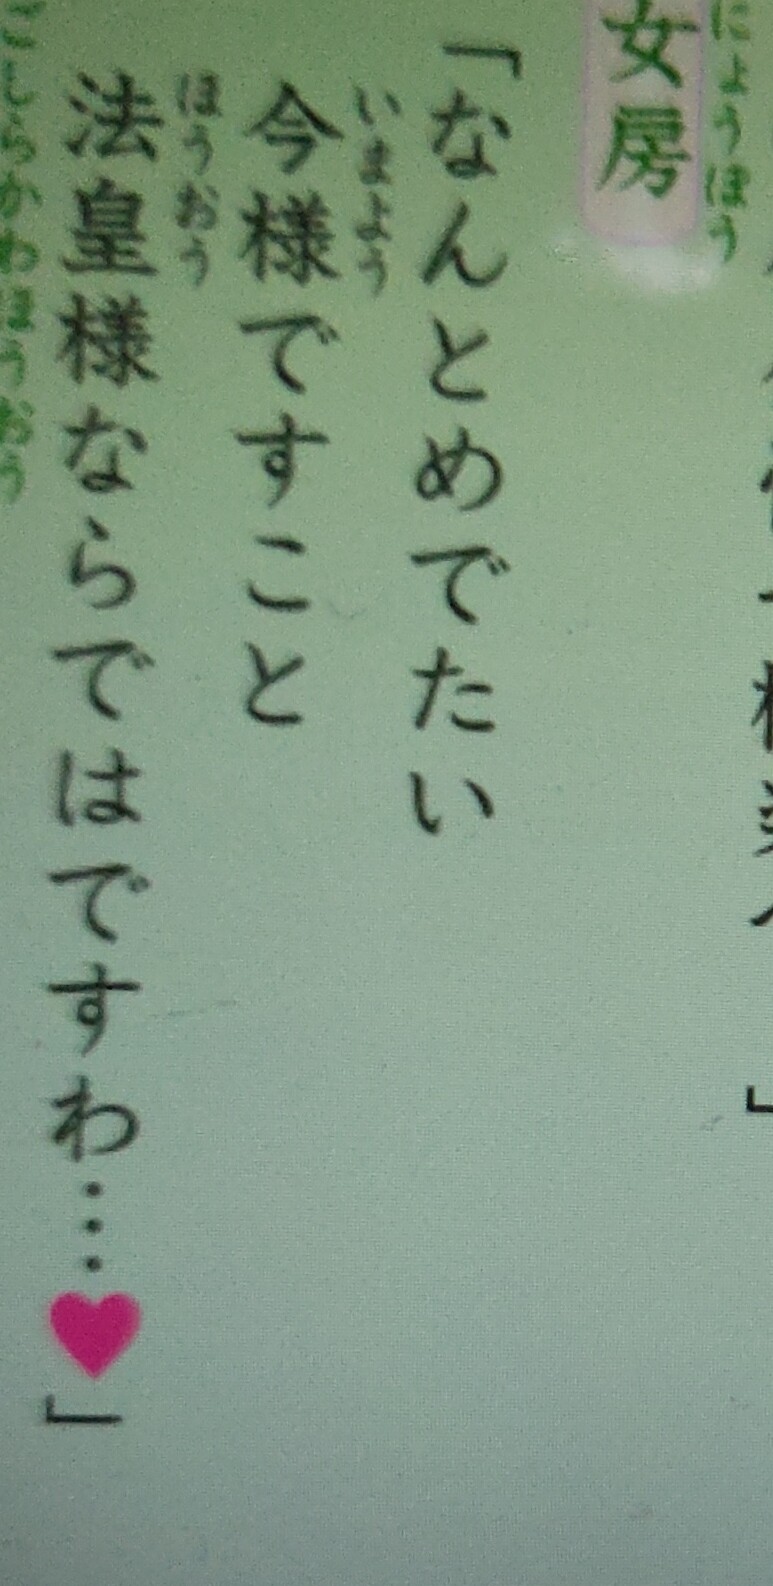 にょうほう
女房
「なんとめでたい
いまよう
今様ですこと
ほうおう
法皇様ならではですわ…♥」
ごしらかわほうおう